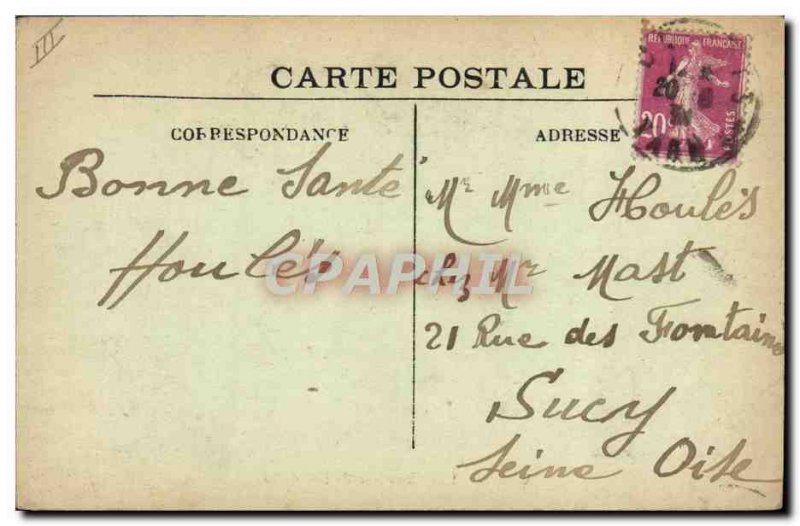 III
CARTE POSTALE
CORRESPONDANCE
ADRESSE
Bonne Santé
Houlés
Mr Mme Houlés
chez Mr Mast
21 Rue des Fontaines
Sucy
Seine Oise
REPUBLIQUE FRANÇAISE
20
POSTES
CPAPHIL